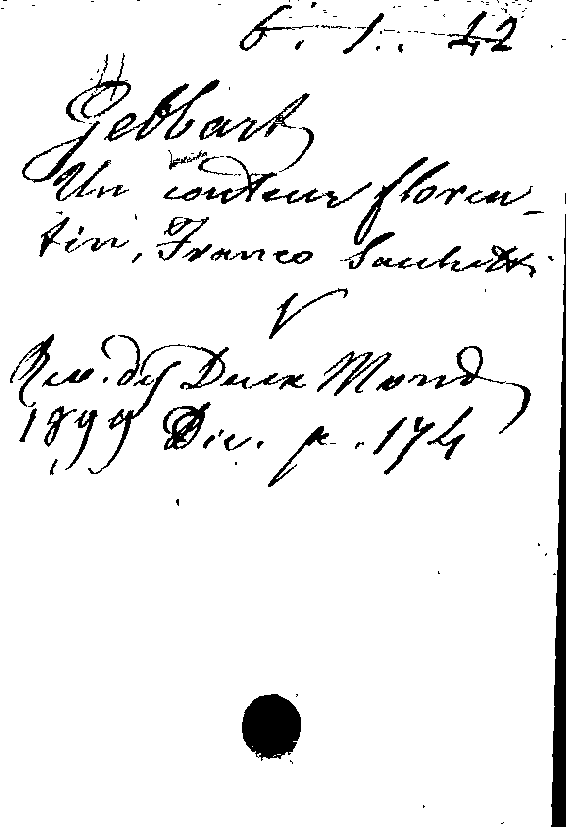 6. 1.. 42
Gebbart
Un conteur floren-
tin, Franco Sacchetti
V
Rev. des Deux Mond
1899 Dic. p. 174